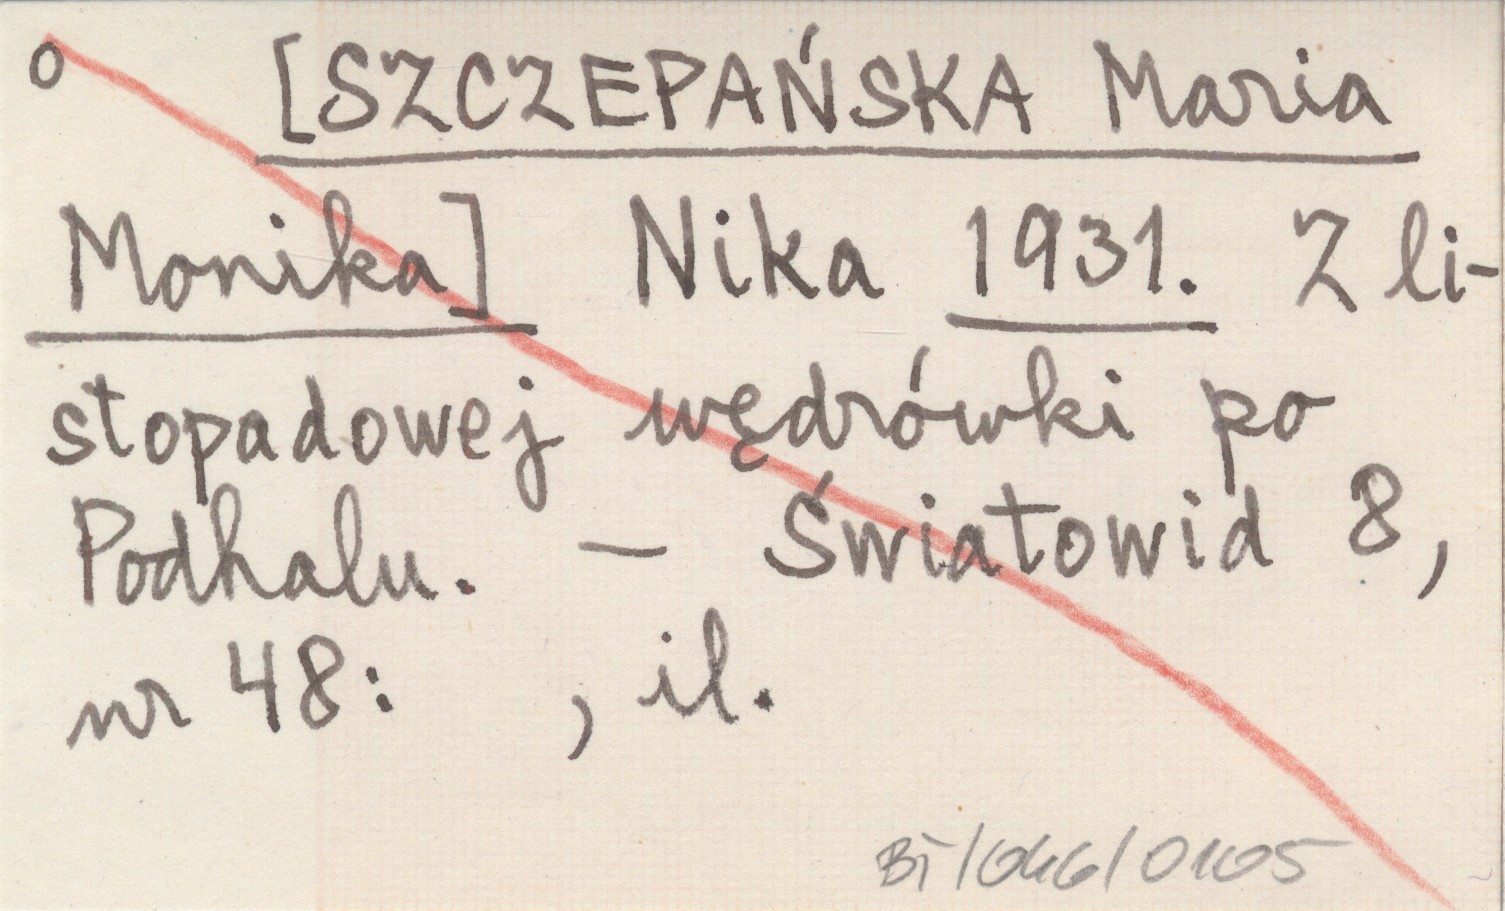 o [SZCZEPAŃSKA Maria
Monika] Nika 1931. Z li-
stopadowej wędrówki po
Podhalu. — Światowid 8,
nr 48: , il.
BT/046/0105